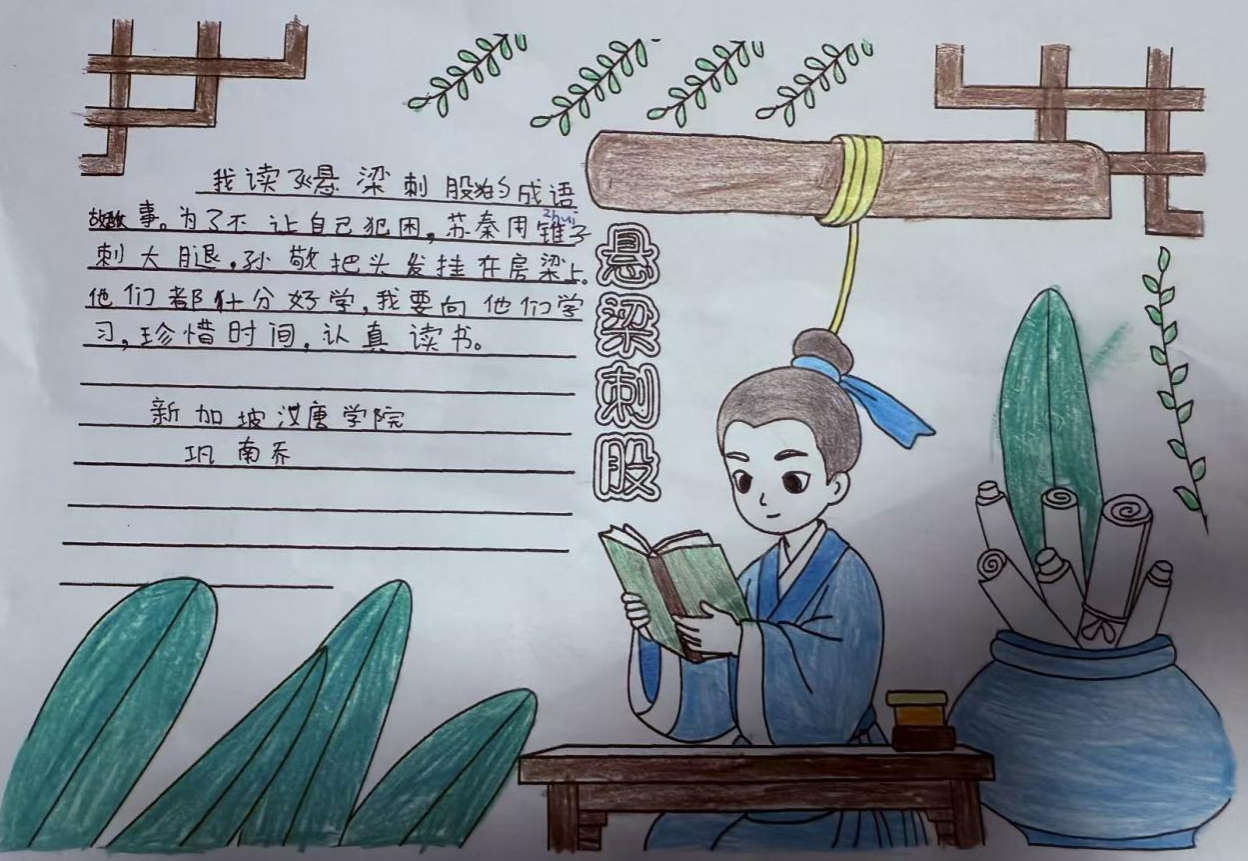 我读了悬梁刺股的成语
故事。为了不让自己犯困，苏秦用锥子
zhuī
刺大腿，孙敬把头发挂在房梁上。
他们都十分好学，我要向他们学
习，珍惜时间，认真读书。
新加坡汉唐学院
巩南乔
悬梁刺股